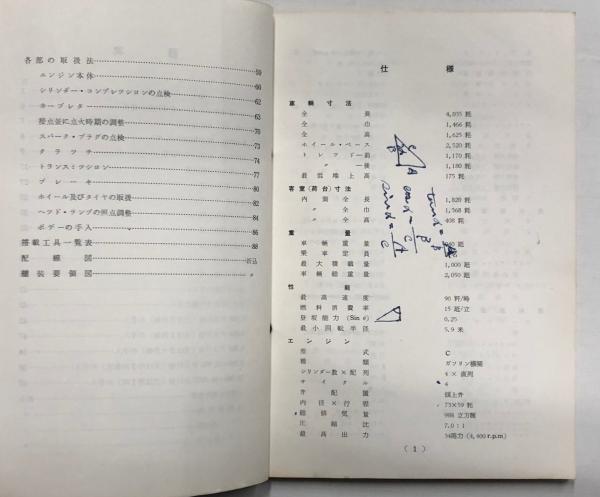 各部の取扱法 59
エンジン本体 60
シリンダー・コンプレッションの点検 62
カーブレター 63
接点並に点火時期の調整 70
スパーク・プラグの点検 73
クラツチ 74
トランスミツシヨン 77
ブレーキ 80
ホイール及びタイヤの取扱 82
ヘツド・ランプの照点調整 84
ボデーの手入 86
搭載工具一覧表 88
配線図 折込
艤装要領図 〃
仕様
車輛寸法
全長 4,035 粍
全巾 1,466 粍
全高 1,625 粍
ホイール・ベース 2,520 粍
トレツド―前 1,170 粍
〃 ―後 1,180 粍
最低地上高 175 粍
客室(荷台)寸法
内側全長 1,820 粍
〃 全巾 1,368 粍
〃 全高 408 粍
重量
車輛重量
乗車定員
最大積載量 1,000 瓩
車輛総重量 2,050 瓩
性能
最高速度 90 粁/時
燃料消費率 15 粁/立
登坂能力 (Sin θ) 0.25
最小回転半径 5.9 米
エンジン
型式 C
種類 ガソリン機関
シリンダー数×配列 4 × 直列
サイクル 4
弁配置 頭上弁
内径×行程 73×59 粍
総排気量 988 立方糎
圧縮比 7.0 : 1
最高出力 34馬力 (4,400 r.p.m)
( 1 )
sin α = A/C
cos α =
tan α =